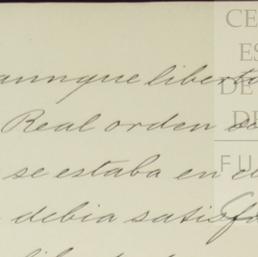 aunque liberta
Real orden
se estaba en
debia satisf
CE
ES
DE
DE
FU